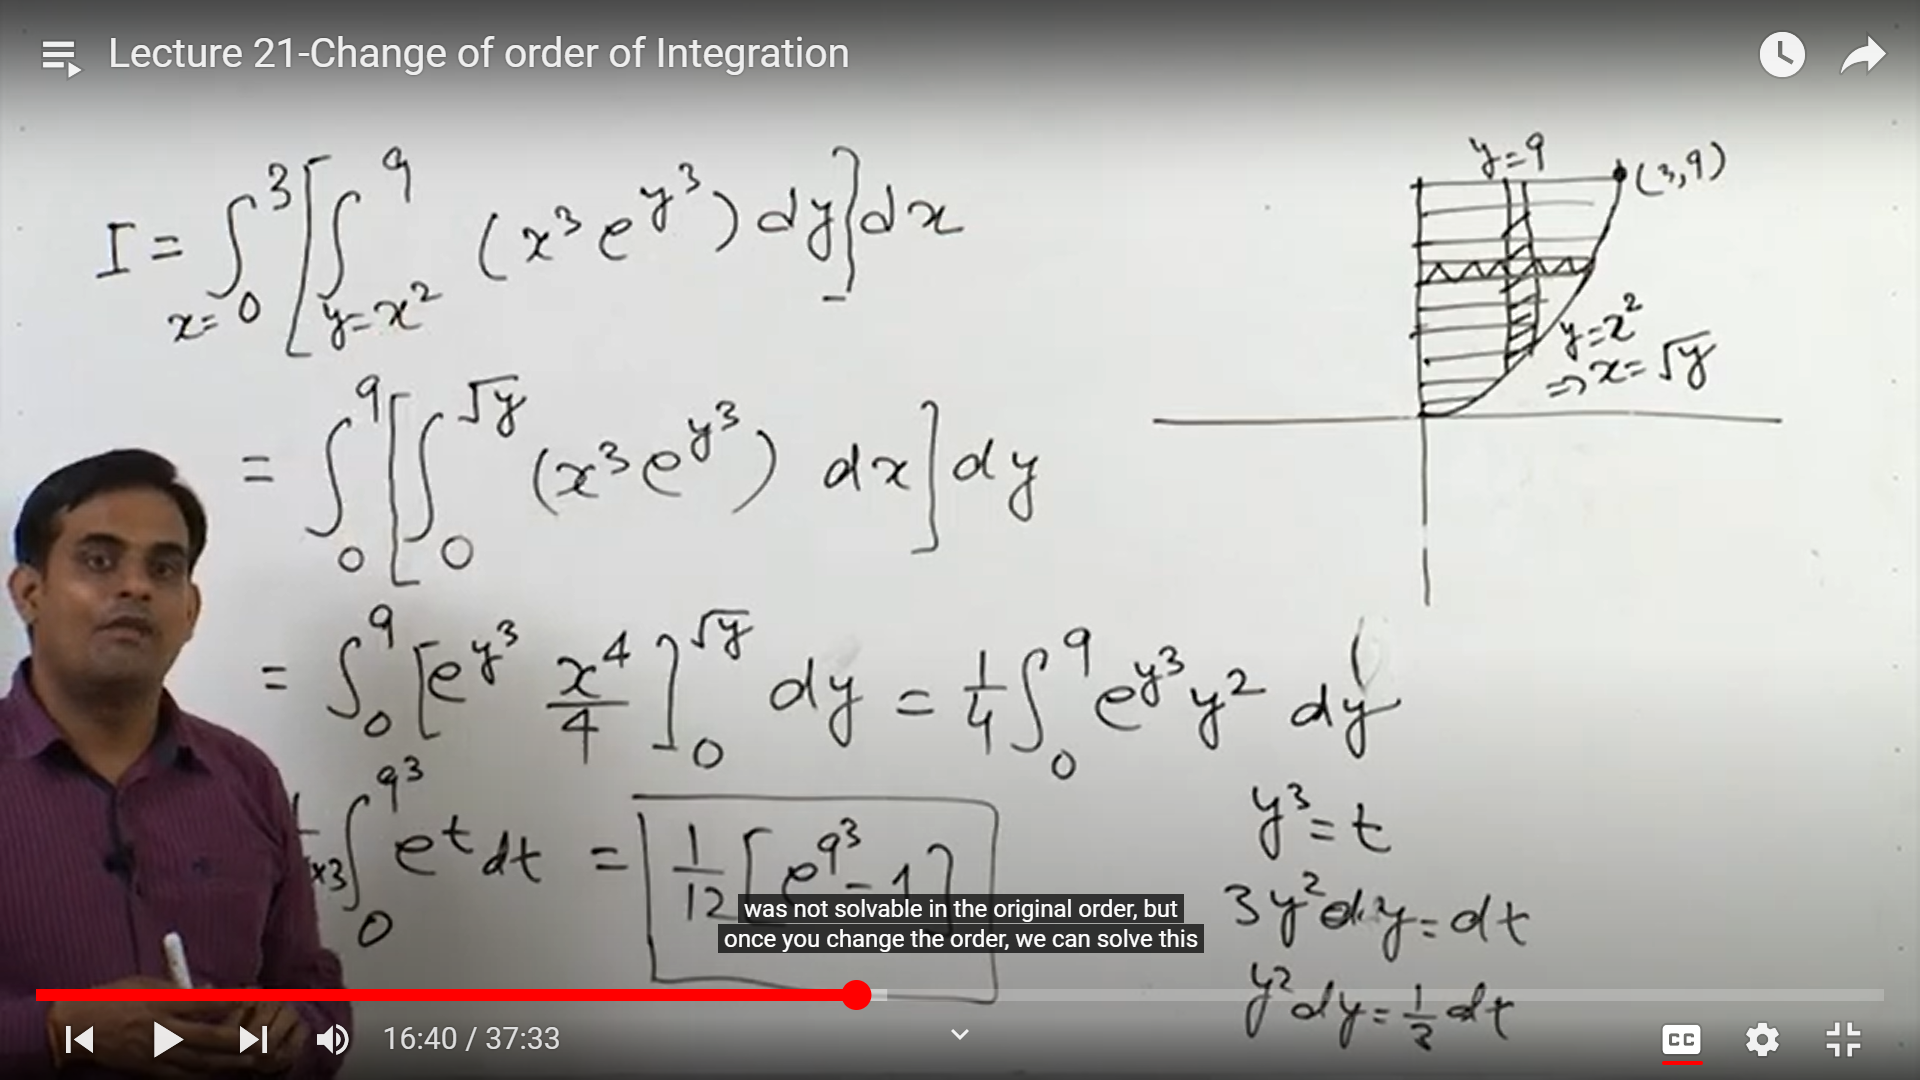 Lecture 21-Change of order of Integration
I = ∫₀³ [ ∫ 9 (x³ e^{y³}) dy ] dx
x= 0 y=x²
y=9 (3,9)
y=x²
⇒ x=√y
= ∫₀⁹ [ ∫₀^{√y} (x³ e^{y³}) dx ] dy
= ∫₀⁹ [ e^{y³} x⁴/4 ]₀^{√y} dy = 1/4 ∫₀⁹ e^{y³} y² dy
×3 ∫₀^{9³} e^t dt = 1/12 [ e^{9³} - 1 ]
y³ = t
3y² dy = dt
y² dy = 1/3 dt
was not solvable in the original order, but
once you change the order, we can solve this
16:40 / 37:33
CC